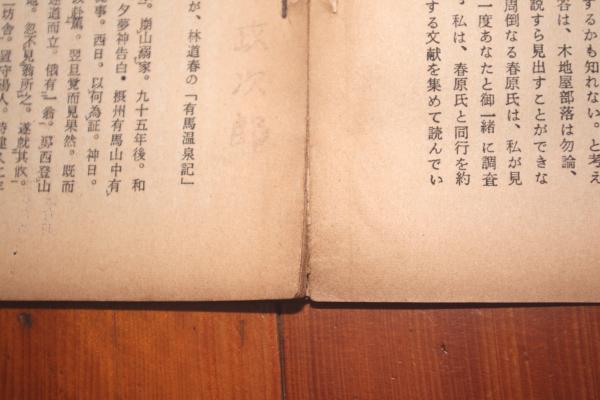 するかも知れない。と考え
は、木地屋部落は勿論、
説すら見出すことができな
周倒なる春原氏は、私が見
一度あなたと御一緒に調査
。私は、春原氏と同行を約
する文献を集めて読んでい
政次郎
が、林道春の「有馬温泉記」
。九十五年後。和
夕夢神告白・摂州有馬山中有
事。西日。以何為証。神日。
翌旦覚而見果然。既而
道而立。俄有一翁。西登山
忽不見翁所之。遂就其
一坊舎。置守湯人。